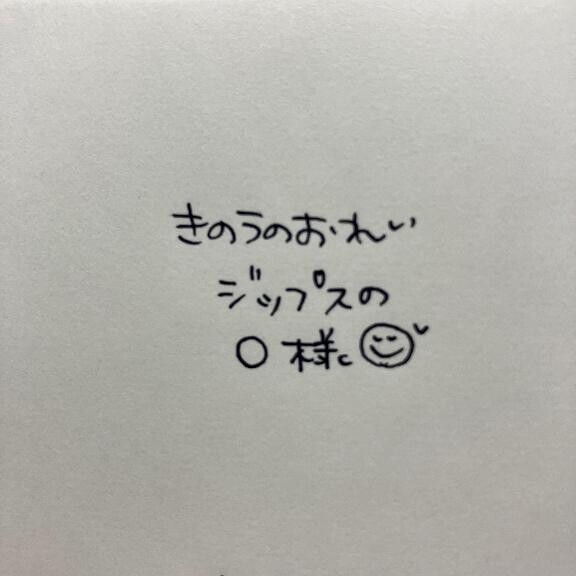 きのうのおれい
ジップスの
〇様。